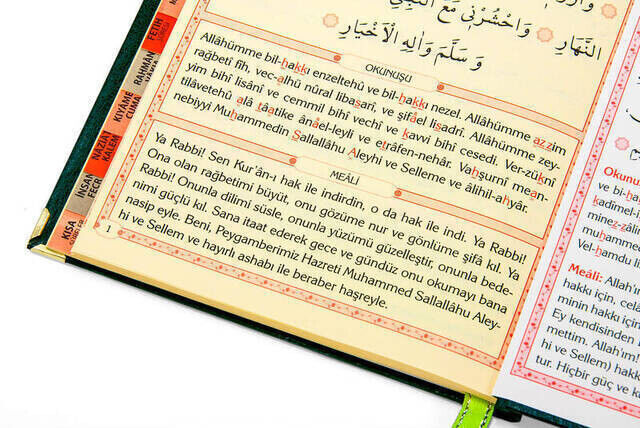 النَّهَارِ وَاحْشُرْنِي مَعَ النَّبِيِّ
وَسَلَّمَ وَاٰلِهِ الْاَخْيَارِ
OKUNUŞU
Allâhümme bil-hakkı enzeltehû ve bil-hakkı nezel. Allâhümme azzim
rağbetî fîh, vec-alhü nûral libasarî, ve şifâel lisadrî. Allâhümme zey-
yim bihî lisânî ve cemmil bihî vechî ve kavvi bihî cesedî. Ver-züknî
tilâvetehû alâ tâatike ânâel-leyli ve etrâfen-nehâr. Vahşurnî mean-
nebiyyi Muhammedin Sallallâhu Aleyhi ve Selleme ve âlihil-ahyâr.
MEÂLİ
Ya Rabbi! Sen Kur'ân-ı hak ile indirdin, o da hak ile indi. Ya Rabbi!
Ona olan rağbetimi büyüt, onu gözüme nur ve gönlüme şifâ kıl. Ya
Rabbi! Onunla dilimi süsle, onunla yüzümü güzelleştir, onunla bede-
nimi güçlü kıl. Sana itaat ederek gece ve gündüz onu okumayı bana
nasip eyle. Beni, Peygamberimiz Hazreti Muhammed Sallallâhu Aley-
hi ve Sellem ve hayırlı ashabı ile beraber haşreyle.
1
FETİH
RAHMÂN
KIYÂME
CUMA
NÂZİÂT
KALEM
İNSAN
FECR
KISA
Okunu
ve bi-h
kadîmel
minez-z
muham
Vel-hamdu li
Meâli: Allah'ı
hakkı için, cel
minin hakkı iç
Ey kendisinden
mettim. Allah'ım!
hi ve Sellem) hakk
tur. Hiçbir güç ve k